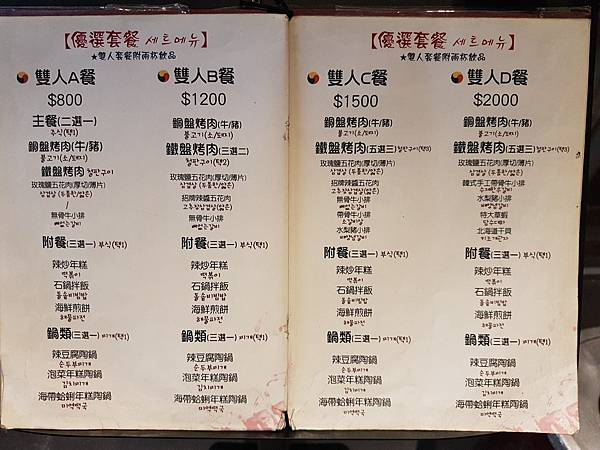 【優選套餐 세트메뉴】
★雙人套餐附兩杯飲品
雙人A餐
$800
主餐(二選一)
주식(택1)
銅盤烤肉(牛/豬)
불고기(소/돼지)
鐵盤烤肉 철판구이
玫瑰鹽五花肉(厚切/薄片)
삼겹살 (두툼한/얇은)
/
無骨牛小排
뼈없는갈비
附餐(三選一) 부식(택1)
辣炒年糕
떡볶이
石鍋拌飯
돌솥비빔밥
海鮮煎餅
해물파전
鍋類(三選一) 찌개(택1)
辣豆腐陶鍋
순두부찌개
泡菜年糕陶鍋
김치찌개
海帶蛤蜊年糕陶鍋
미역떡국
雙人B餐
$1200
銅盤烤肉(牛/豬)
불고기(소/돼지)
鐵盤烤肉(三選二)
철판구이(택2)
玫瑰鹽五花肉(厚切/薄片)
삼겹살 (두툼한/얇은)
招牌辣醬五花肉
고추장삼겹살(얇은)
無骨牛小排
뼈없는갈비
附餐(三選一) 부식(택1)
辣炒年糕
떡볶이
石鍋拌飯
돌솥비빔밥
海鮮煎餅
해물파전
鍋類(三選一) 찌개(택1)
辣豆腐陶鍋
순두부찌개
泡菜年糕陶鍋
김치찌개
海帶蛤蜊年糕陶鍋
미역떡국
【優選套餐 세트메뉴】
★雙人套餐附兩杯飲品
雙人C餐
$1500
銅盤烤肉(牛/豬)
불고기(소/돼지)
鐵盤烤肉(五選三) 철판구이(택3)
玫瑰鹽五花肉(厚切/薄片)
삼겹살 (두툼한/얇은)
招牌辣醬五花肉
고추장삼겹살(얇은)
無骨牛小排
뼈없는갈비
帶骨牛小排
소갈비살
水梨豬小排
돼지양념갈비
附餐(三選一) 부식(택1)
辣炒年糕
떡볶이
石鍋拌飯
돌솥비빔밥
海鮮煎餅
해물파전
鍋類(三選一) 찌개(택1)
辣豆腐陶鍋
순두부찌개
泡菜年糕陶鍋
김치찌개
海帶蛤蜊年糕陶鍋
미역떡국
雙人D餐
$2000
銅盤烤肉(牛/豬)
불고기(소/돼지)
鐵盤烤肉(五選三) 철판구이(택3)
玫瑰鹽五花肉(厚切/薄片)
삼겹살 (두툼한/얇은)
韓式手工帶骨牛小排
水梨豬小排
特大草蝦
北海道干貝
附餐(三選一) 부식(택1)
辣炒年糕
떡볶이
石鍋拌飯
돌솥비빔밥
海鮮煎餅
해물파전
鍋類(三選一) 찌개(택1)
辣豆腐陶鍋
순두부찌개
泡菜年糕陶鍋
김치찌개
海帶蛤蜊年糕陶鍋
미역떡국